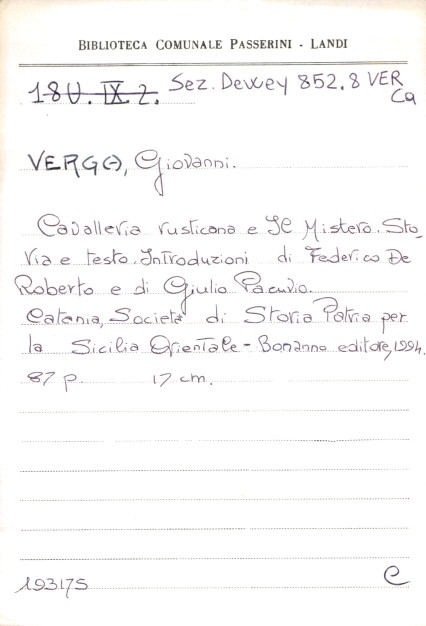 BIBLIOTECA COMUNALE PASSERINI - LANDI
18U. IX. 2. Sez. Dewey 852.8 VER
Ca
VERGA, Giovanni.
Cavalleria rusticana e Il Mistero. Sto_
ria e testo. Introduzioni di Federico De
Roberto e di Giulio Pacuvio.
Catania, Società di Storia Patria per
la Sicilia Orientale - Bonanno editore, 1994.
87 p. 17 cm.
193175
C